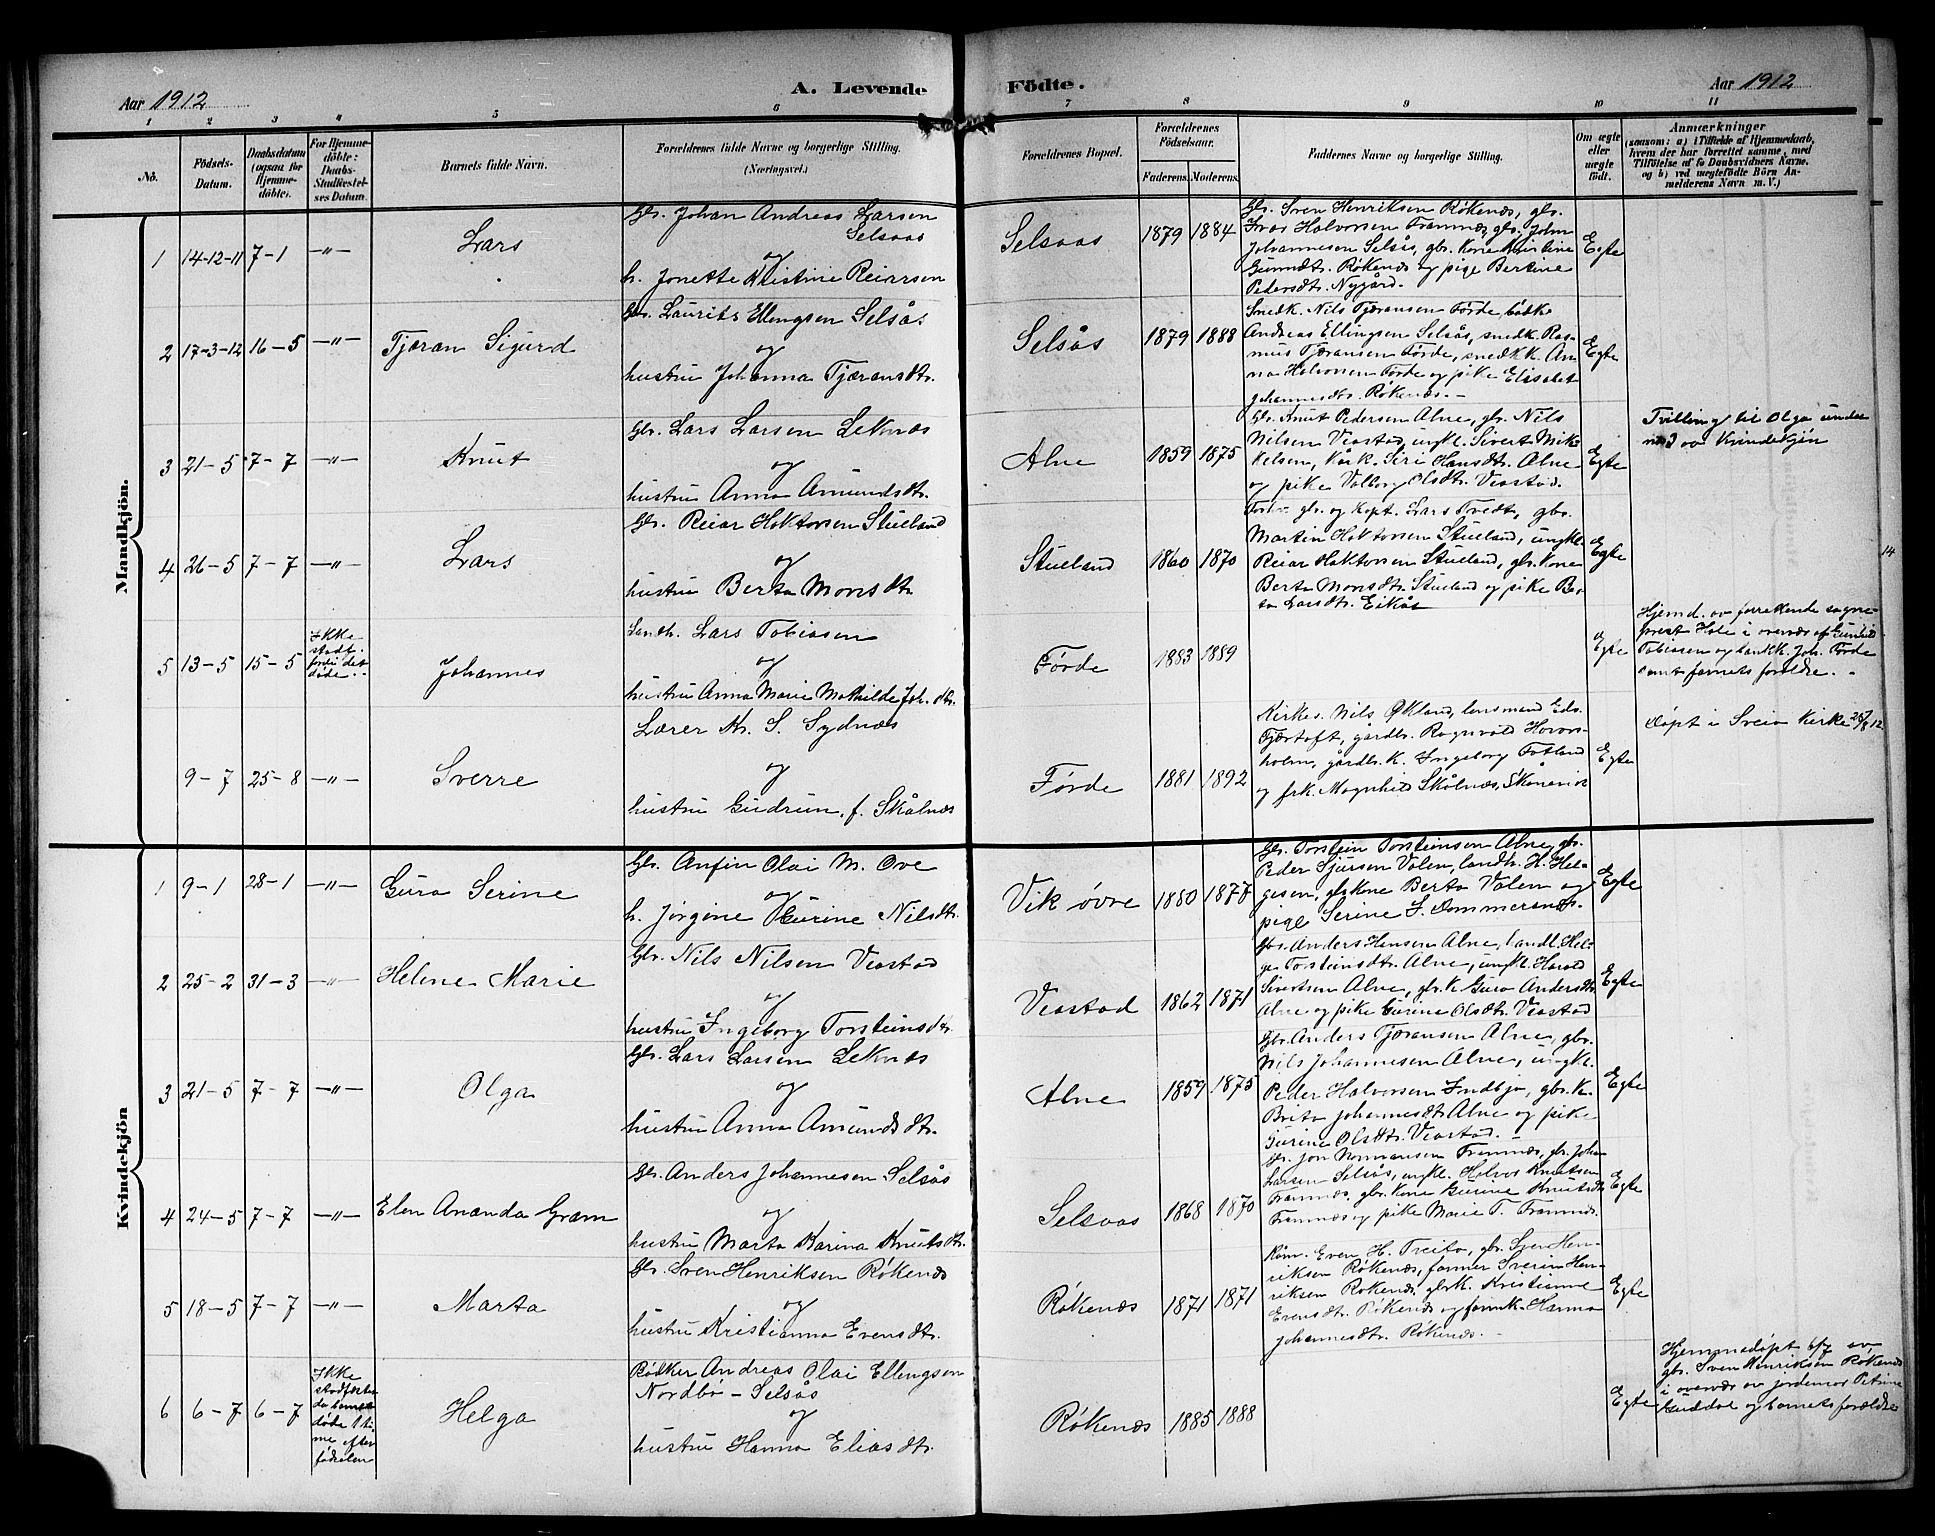 Aar 1912
A. Levende
Födte.
Aar 1912
1 2 3 4 5 6 7 8 9 10 11
No.
Födsels-
Datum.
Daabsdatum
(ogsaa for
Hjemme-
döbte).
For Hjemme-
döbte:
Daabs-
Stadfæstel-
ses Datum.
Barnets fulde Navn.
Forældrenes fulde Navne og borgerlige Stilling.
(Næringsvei.)
Forældrenes Bopæl.
Forældrenes
Födselsaar.
Faderens. Moderens.
Faddernes Navne og borgerlige Stilling.
Om ægte
eller
uægte
født.
Anmærkninger
(saasom: a) i Tilfælde af Hjemmedaab,
hvem der har forrettet samme, med
Tilföielse af to Daabsvidners Navne.
og b) ved uægtefödte Börn An-
melderens Navn m. V.)
Mandkjön.
1 14-12-11 7-1 -"- Lars
Gbr. Johan Andreas Larsen
Selsaas
og
h. Jonette Kristine Reiarsen
Selsaas 1879 1884
Gbr. Sven Henriksen Røkenes, gbr.
Ivar Halvorsen Framnæs, gbr. John
Johannesen Selsås, gbr. kone Kristine
Gunndtr. Røkenes og pige Bertine
Pedersdtr. Nygård.
Egte
2 17-3-12 16-5 -"- Tjæran Sigurd
Gbr. Laurits Ellingsen Selsås
og
hustru Johanna Tjæransdtr.
Selsås 1879 1888
Snedk. Nils Tjæransen Førde, bødk.
Andreas Ellingsen Selsås, snedk. Ras-
mus Tjæransen Førde, snedk.k. An-
na Halvorsen Førde og pike Elisabet
Johannesdtr. Røkenes.-
Egte
3 21-5 7-7 -"- Knut
Gbr. Lars Larsen Leknes
og
hustru Anna Amundsdtr.
Alne 1859 1875
Gbr. Knut Pedersen Alne, gbr. Nils
Nilsen Veastad, ungk. Sivert Mik-
kelsen, kårk. Siri Hansdtr. Alne
og pike Valborg Olsdtr. Veastad.
Egte
Tvilling til Olga under
nr. 3 av Kvindekjøn
4 26-5 7-7 -"- Lars
Gbr. Reiar Haktorsen Stueland
og
hustru Berta Monsdtr
Stueland 1860 1870
gbr. og kapt. Lars Tvedt, gbr.
Martin Haktorsen Stueland, ungk.
Reiar Haktorsen Stueland, gbr. kone
Berta Monsdtr. Stueland og pike Ber-
ta Larsdtr. Eikås
Egte
5 13-5 15-5
Ikke
stadf.
fordi det
døde..
Johannes
Landh. Lars Tobiasen
og
hustru Anna Marie Mathilde Joh. dtr.
Førde 1883 1889
Egte
Hjemd. av sogne-
prest Hole i overvær af Gunhild
Tobiasen og Joh. Førde
samt barnets forældre.
9-7 25-8 -"- Sverre
Lærer Kr. S. Sydnæs
og
hustru Gudrun, f. Skålnes
Førde 1881 1892
Kirkes. Nils Økland, lensmand Edv.
Tjærtoft, gårdbr. Ragnvald Hovars-
holm, gårdbr. k. Ingeborg Totland
og frk. Magnhild Skålnæs, Skånevik
Egte
Døpt i Sveio kirke 25/8 12.
Kvindekjön
1 9-1 28-1 -"- Guro Serine
Gbr. Anfin Olai M. Ove
og
h. Jørgine Gurine Nilsdtr.
Vik øvre 1880 1877
Gbr. Torstein Torsteinsen Alne, gbr.
Peder Sjursen Valen, landh. H. Hel-
gesen, gbrkone Berta Valen og
pige Serine S. Dommersnes.
Egte
2 25-2 31-3 -"- Helene Marie
Gbr. Nils Nilsen Veastad
og
hustru Ingeborg Torsteinsdtr.
Veastad 1862 1871
Gbr. Anders Hansen Alne, landh. Hel-
ge Torsteinsdtr. Alne, ungk. Harald
Sivertsen Alne, gbr.k. Guro Andersdtr.
Alne og pike Gurine Olsdtr. Veastad
Egte
3 21-5 7-7 -"- Olga
Gbr. Lars Larsen Leknes
og
hustru Anna Amundsdtr.
Alne 1859 1875
Gbr. Anders Tjæransen Alne, gbr.
Nils Johannesen Alne, ungk.
Peder Halvorsen Indbjo, gbr. k.
Brita Johannesdtr. Alne og pike
Gurine Olsdtr. Veastad.
Egte
4 24-5 7-7 -"- Elen Ananda Gram
Gbr. Anders Johannesen Selsås
og
hustru Marta Karina Knutsdtr.
Selsaas 1868 1870
Gbr. Jon Normansen Framnes, gbr. Johan
Larsen Selsås, ungk. Halvor Knutsen
Framnes, gbr. kone Gurine Knutsdtr.
Framnæs og pike Marie T. Framnes.
Egte
5 18-5 7-7 -"- Marta
Gbr. Sven Henriksen Røkenes
og
hustru Kristianna Evensdtr.
Røkenæs 1871 1871
Even H. Treita, gbr. Sven Hen-
riksen Røkenes, farmer Sverin Hen-
riksen Røkenes, gbrk. Kristianne
Evensdtr. Røkenes og farmk. Hanna
Johannesdtr. Røkenes.
Egte
6 6-7 6-7
Ikke
stadfæstet
da barnet
døde 1 ti-
me efter
fødselen
Helga
Bødker Andreas Olai Ellingsen
Nordbø - Selsås
og
hustru Hanna Eliasdtr.
Røkenæs 1885 1888
Egte
Hjemmedøpt 6/7 av
gbr. Sven Henriksen Røkenes
i overvær av jordemor Petrine
Guddal og barnets forældre
14